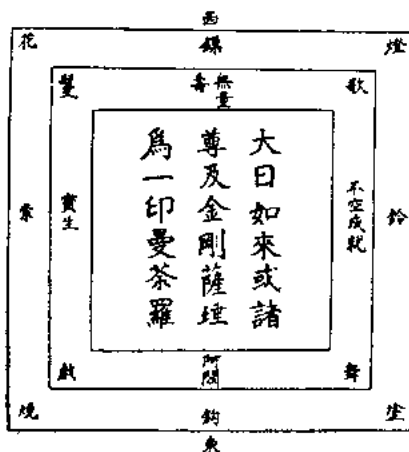 西
花 鏁 燈
鬘 無量壽 歌
大日如來或諸
尊及金剛薩埵
爲一印曼荼羅
索 寶生 不空成就 鈴
戲 阿閦 舞
燒 鉤 塗
東